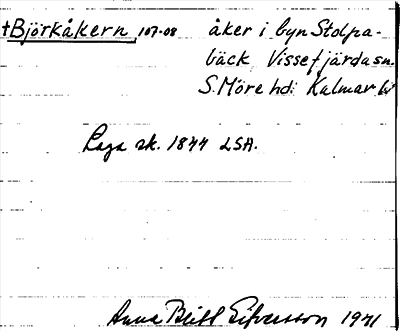 +Björkåkern 107-08 åker i byn Stolpa-
bäck Vissefjärda sn.
S. Möre hd: Kalmar lä
Laga sk. 1844 LSA.
Anna Britt Sifversson 1941